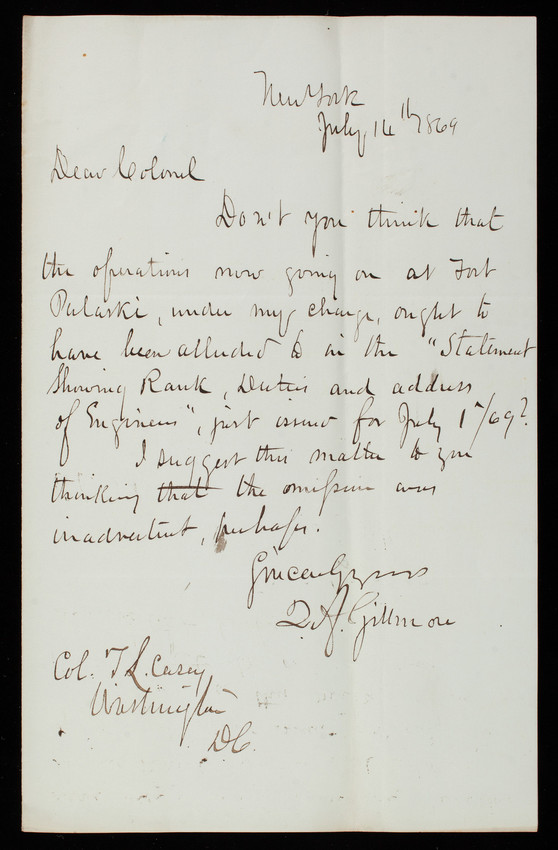 New York
July 14th 1869
Dear Colonel
Don't you think that
the operations now going on at Fort
Pulaski, under my charge, ought to
have been alluded to in the "Statement
Showing Rank, Duties and address
of Engineers", just issued for July 1st/69?
I suggest this matter to you
thinking that the omission was
inadvertent, perhaps.
Sincerely yours
Q. A. Gillmore
Col. T. L. Casey
Washington
D.C.